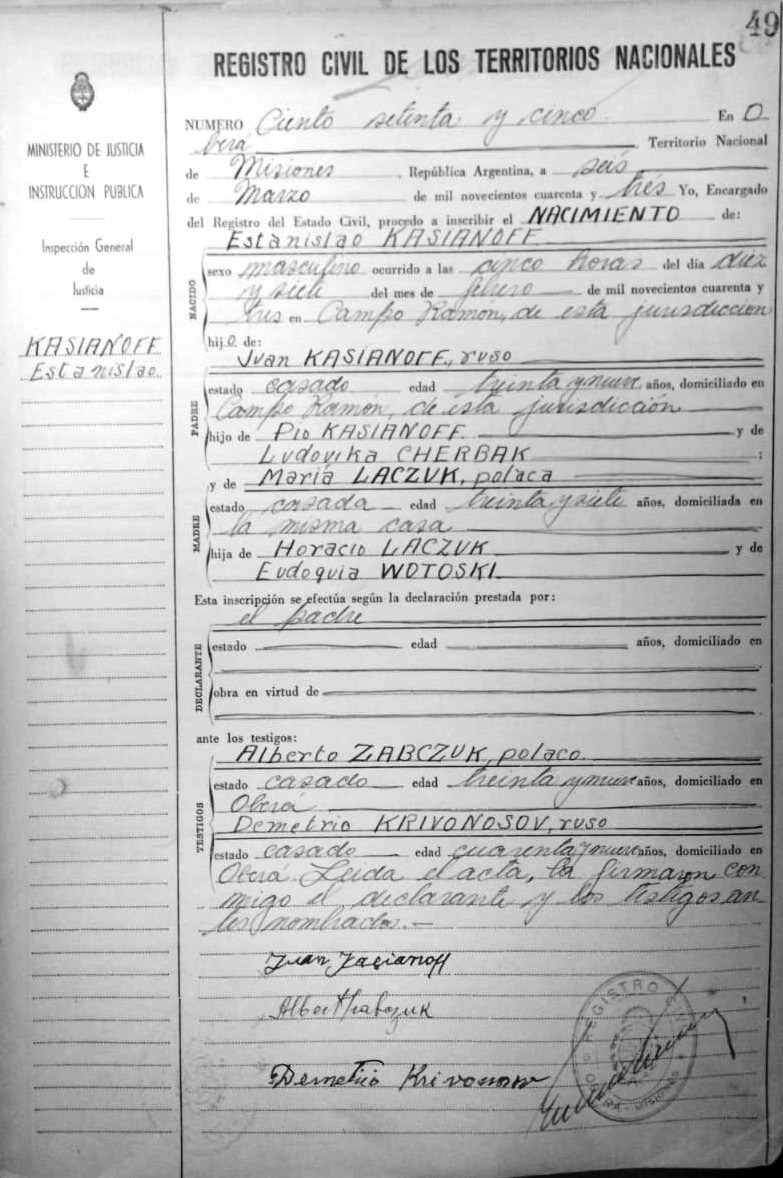 49
REGISTRO CIVIL DE LOS TERRITORIOS NACIONALES
MINISTERIO DE JUSTICIA
E
INSTRUCCION PUBLICA
Inspección General
de
Justicia
KASIANOFF
Estanislao
NUMERO Ciento setenta y cinco. En O
berá Territorio Nacional
de Misiones, República Argentina, a seis
de Marzo de mil novecientos cuarenta y trés Yo, Encargado
del Registro del Estado Civil, procedo a inscribir el NACIMIENTO de:
Estanislao KASIANOFF
NACIDO
sexo masculino ocurrido a las cinco horas del día diez
y siete del mes de febrero de mil novecientos cuarenta y
tres en Campo Ramón, de esta jurisdicción
hijo de:
Juan KASIANOFF, ruso
PADRE
estado casado edad treinta y nueve años, domiciliado en
Campo Ramón, de ésta jurisdicción
hijo de Pío KASIANOFF y de
Ludovika CHERBAK ;
y de María LACZUK, polaca
MADRE
estado casada edad treinta y siete años, domiciliada en
la misma casa
hija de Horacio LACZUK y de
Eudoquia WOTOSKI
Esta inscripción se efectúa según la declaración prestada por:
el padre
DECLARANTE
estado edad años, domiciliado en
obra en virtud de
ante los testigos:
Alberto ZABCZUK, polaco
TESTIGOS
estado casado edad treinta y nueve años, domiciliado en
Oberá
Demetrio KRIVONOSOV, ruso
estado casado edad cuarenta y nueve años, domiciliado en
Oberá. Leida el acta, la firmaron con
migo el declarante y los testigos an
tes nombrados.—
Juan Kasianoff
Albert Zabczuk
Demetrio Krivonosow
REGISTRO CIVIL
OBERA - MISIONES